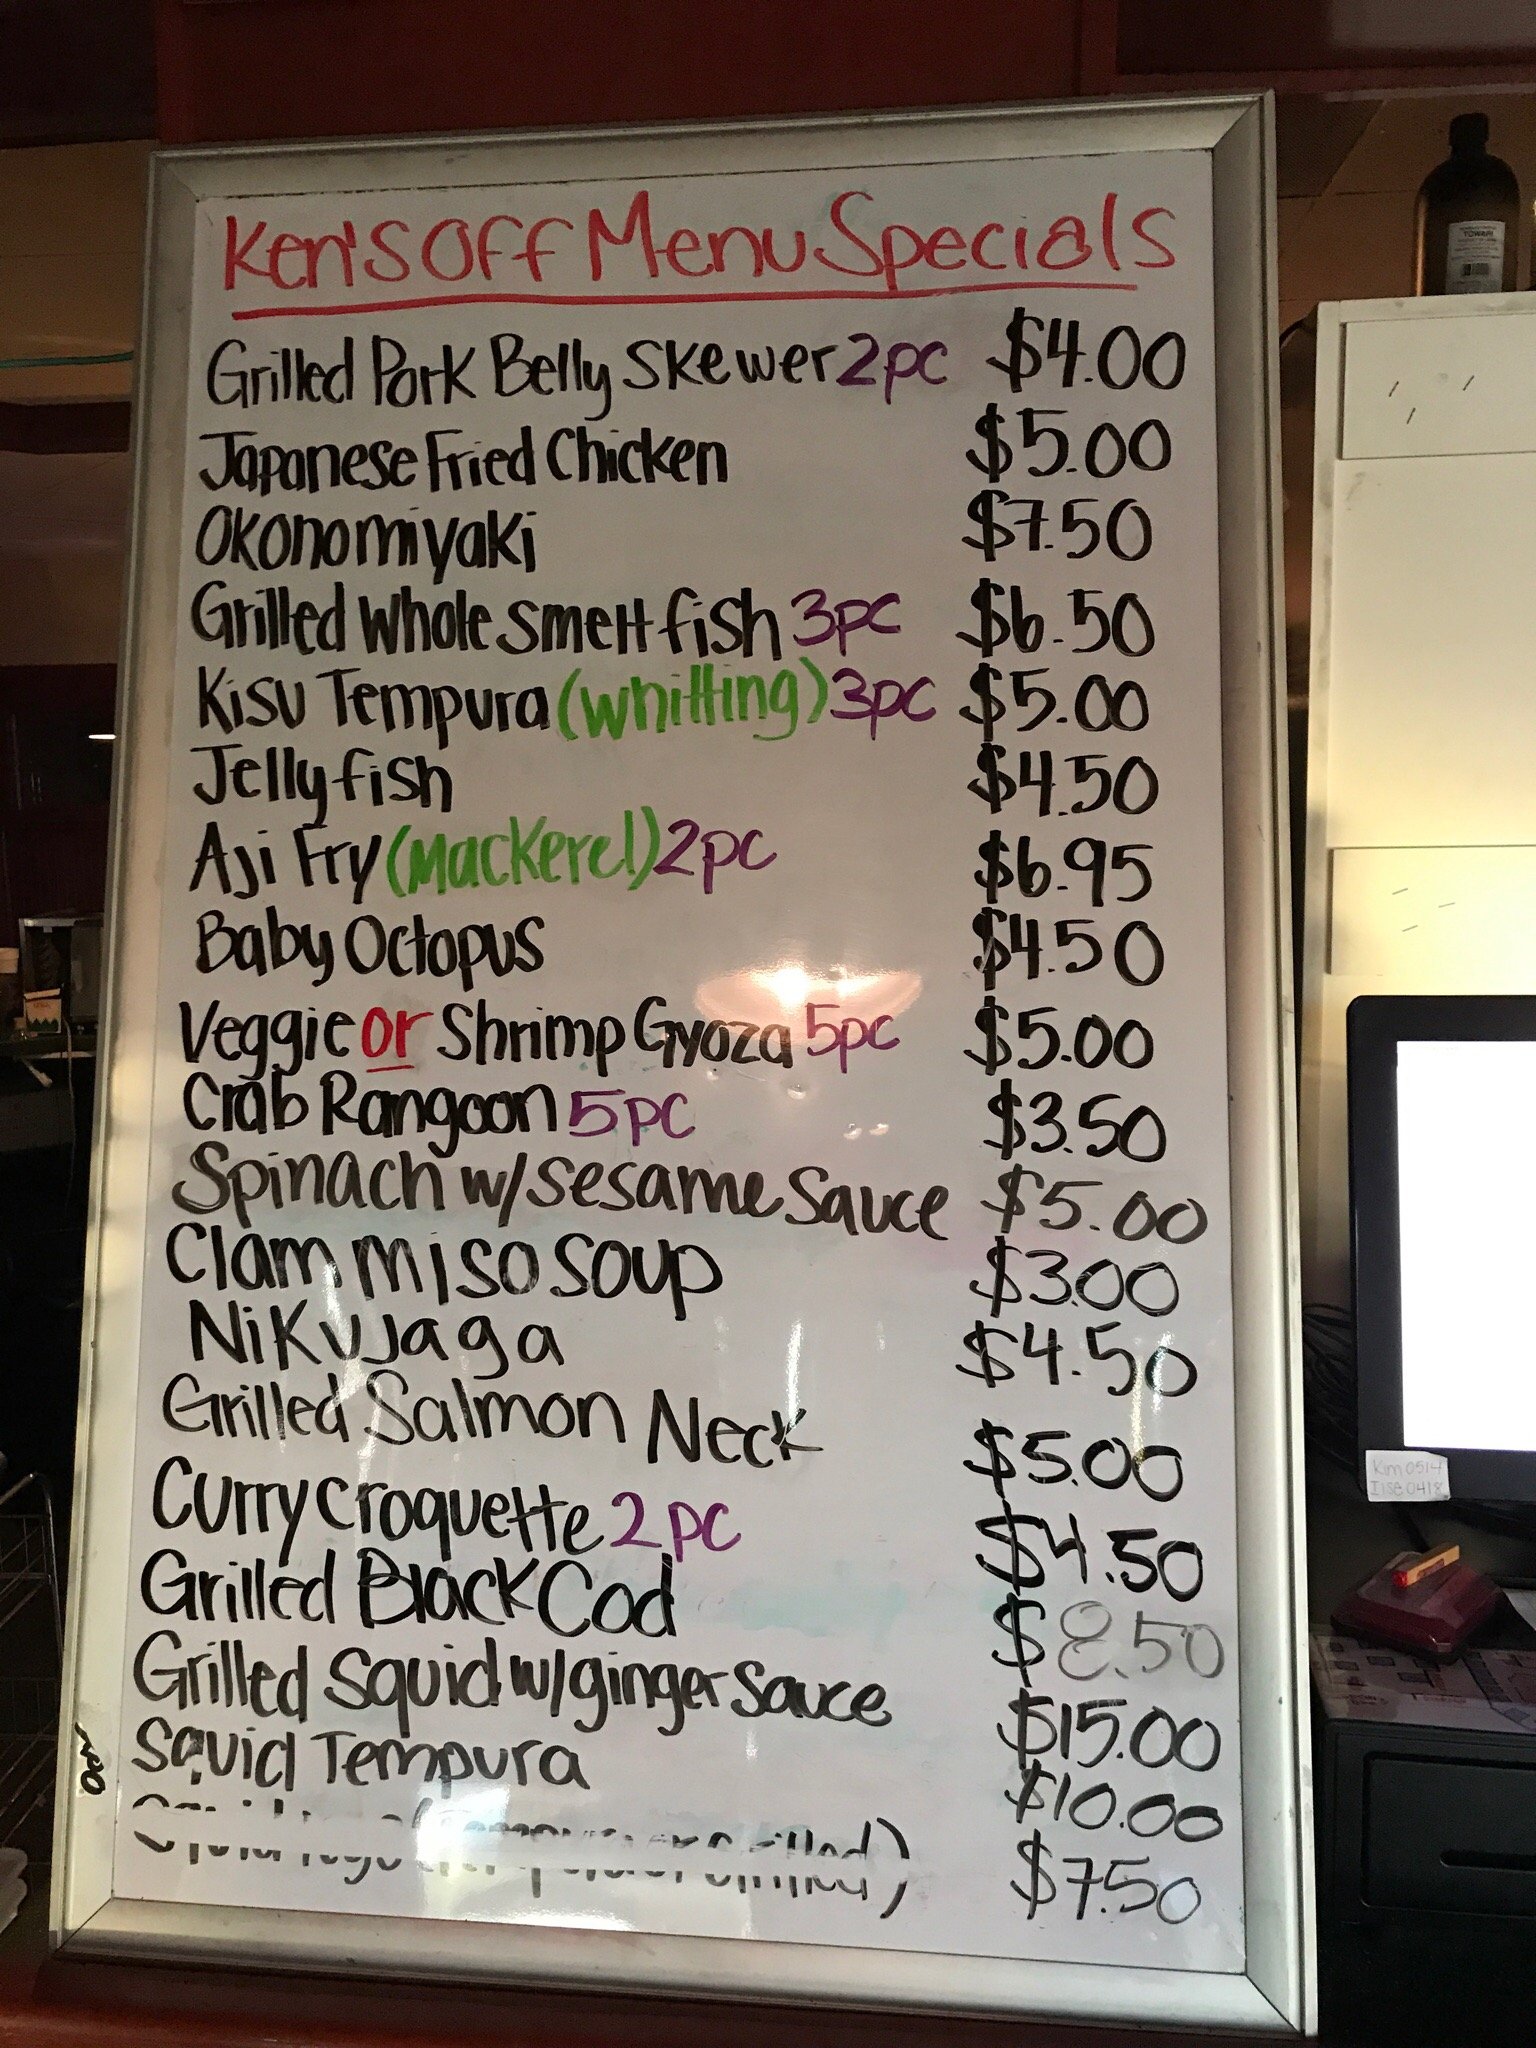 Ken's Off Menu Specials
Grilled Pork Belly Skewer 2pc $4.00
Japanese Fried Chicken $5.00
Okonomiyaki $7.50
Grilled Whole Smelt fish 3pc $6.50
Kisu Tempura (whitting) 3pc $5.00
Jelly fish $4.50
Aji Fry (Mackerel) 2pc $6.95
Baby Octopus $4.50
Veggie or Shrimp Gyoza 5pc $5.00
Crab Rangoon 5pc $3.50
Spinach w/ Sesame Sauce $5.00
Clam miso soup $3.00
Nikujaga $4.50
Grilled Salmon Neck $5.00
Curry croquette 2pc $4.50
Grilled Black Cod $8.50
Grilled Squid w/ginger Sauce $15.00
Squid Tempura $10.00
$7.50
TOWARI
Kim 0514
0418